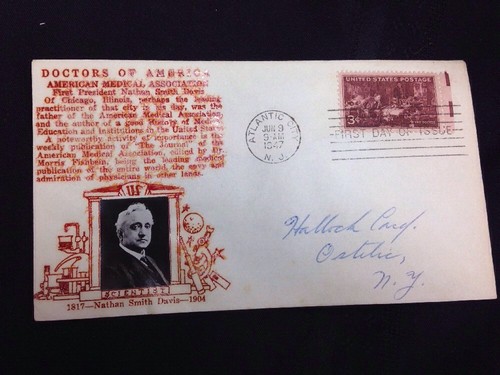 DOCTORS OF AMERICA
AMERICAN MEDICAL ASSOCIATION
First President Nathan Smith Davis
Of Chicago, Illinois, perhaps the leading
practitioner of that city in his day, was the
father of the American Medical Association,
and the author of a good History of Medical
Education and Institutions in the United States
A noteworthy Activity of importance is the
weekly publication of "The Journal" of the
American Medical Association, edited by Dr.
Morris Fishbein, being the leading medical
publication of the entire world, the envy and
admiration of physicians in other lands.
US
SCIENTIST
1817—Nathan Smith Davis—1904
UNITED STATES POSTAGE
3¢
ATLANTIC CITY
JUN 9
9-AM
1947
N. J.
FIRST DAY OF ISSUE
N. Y.